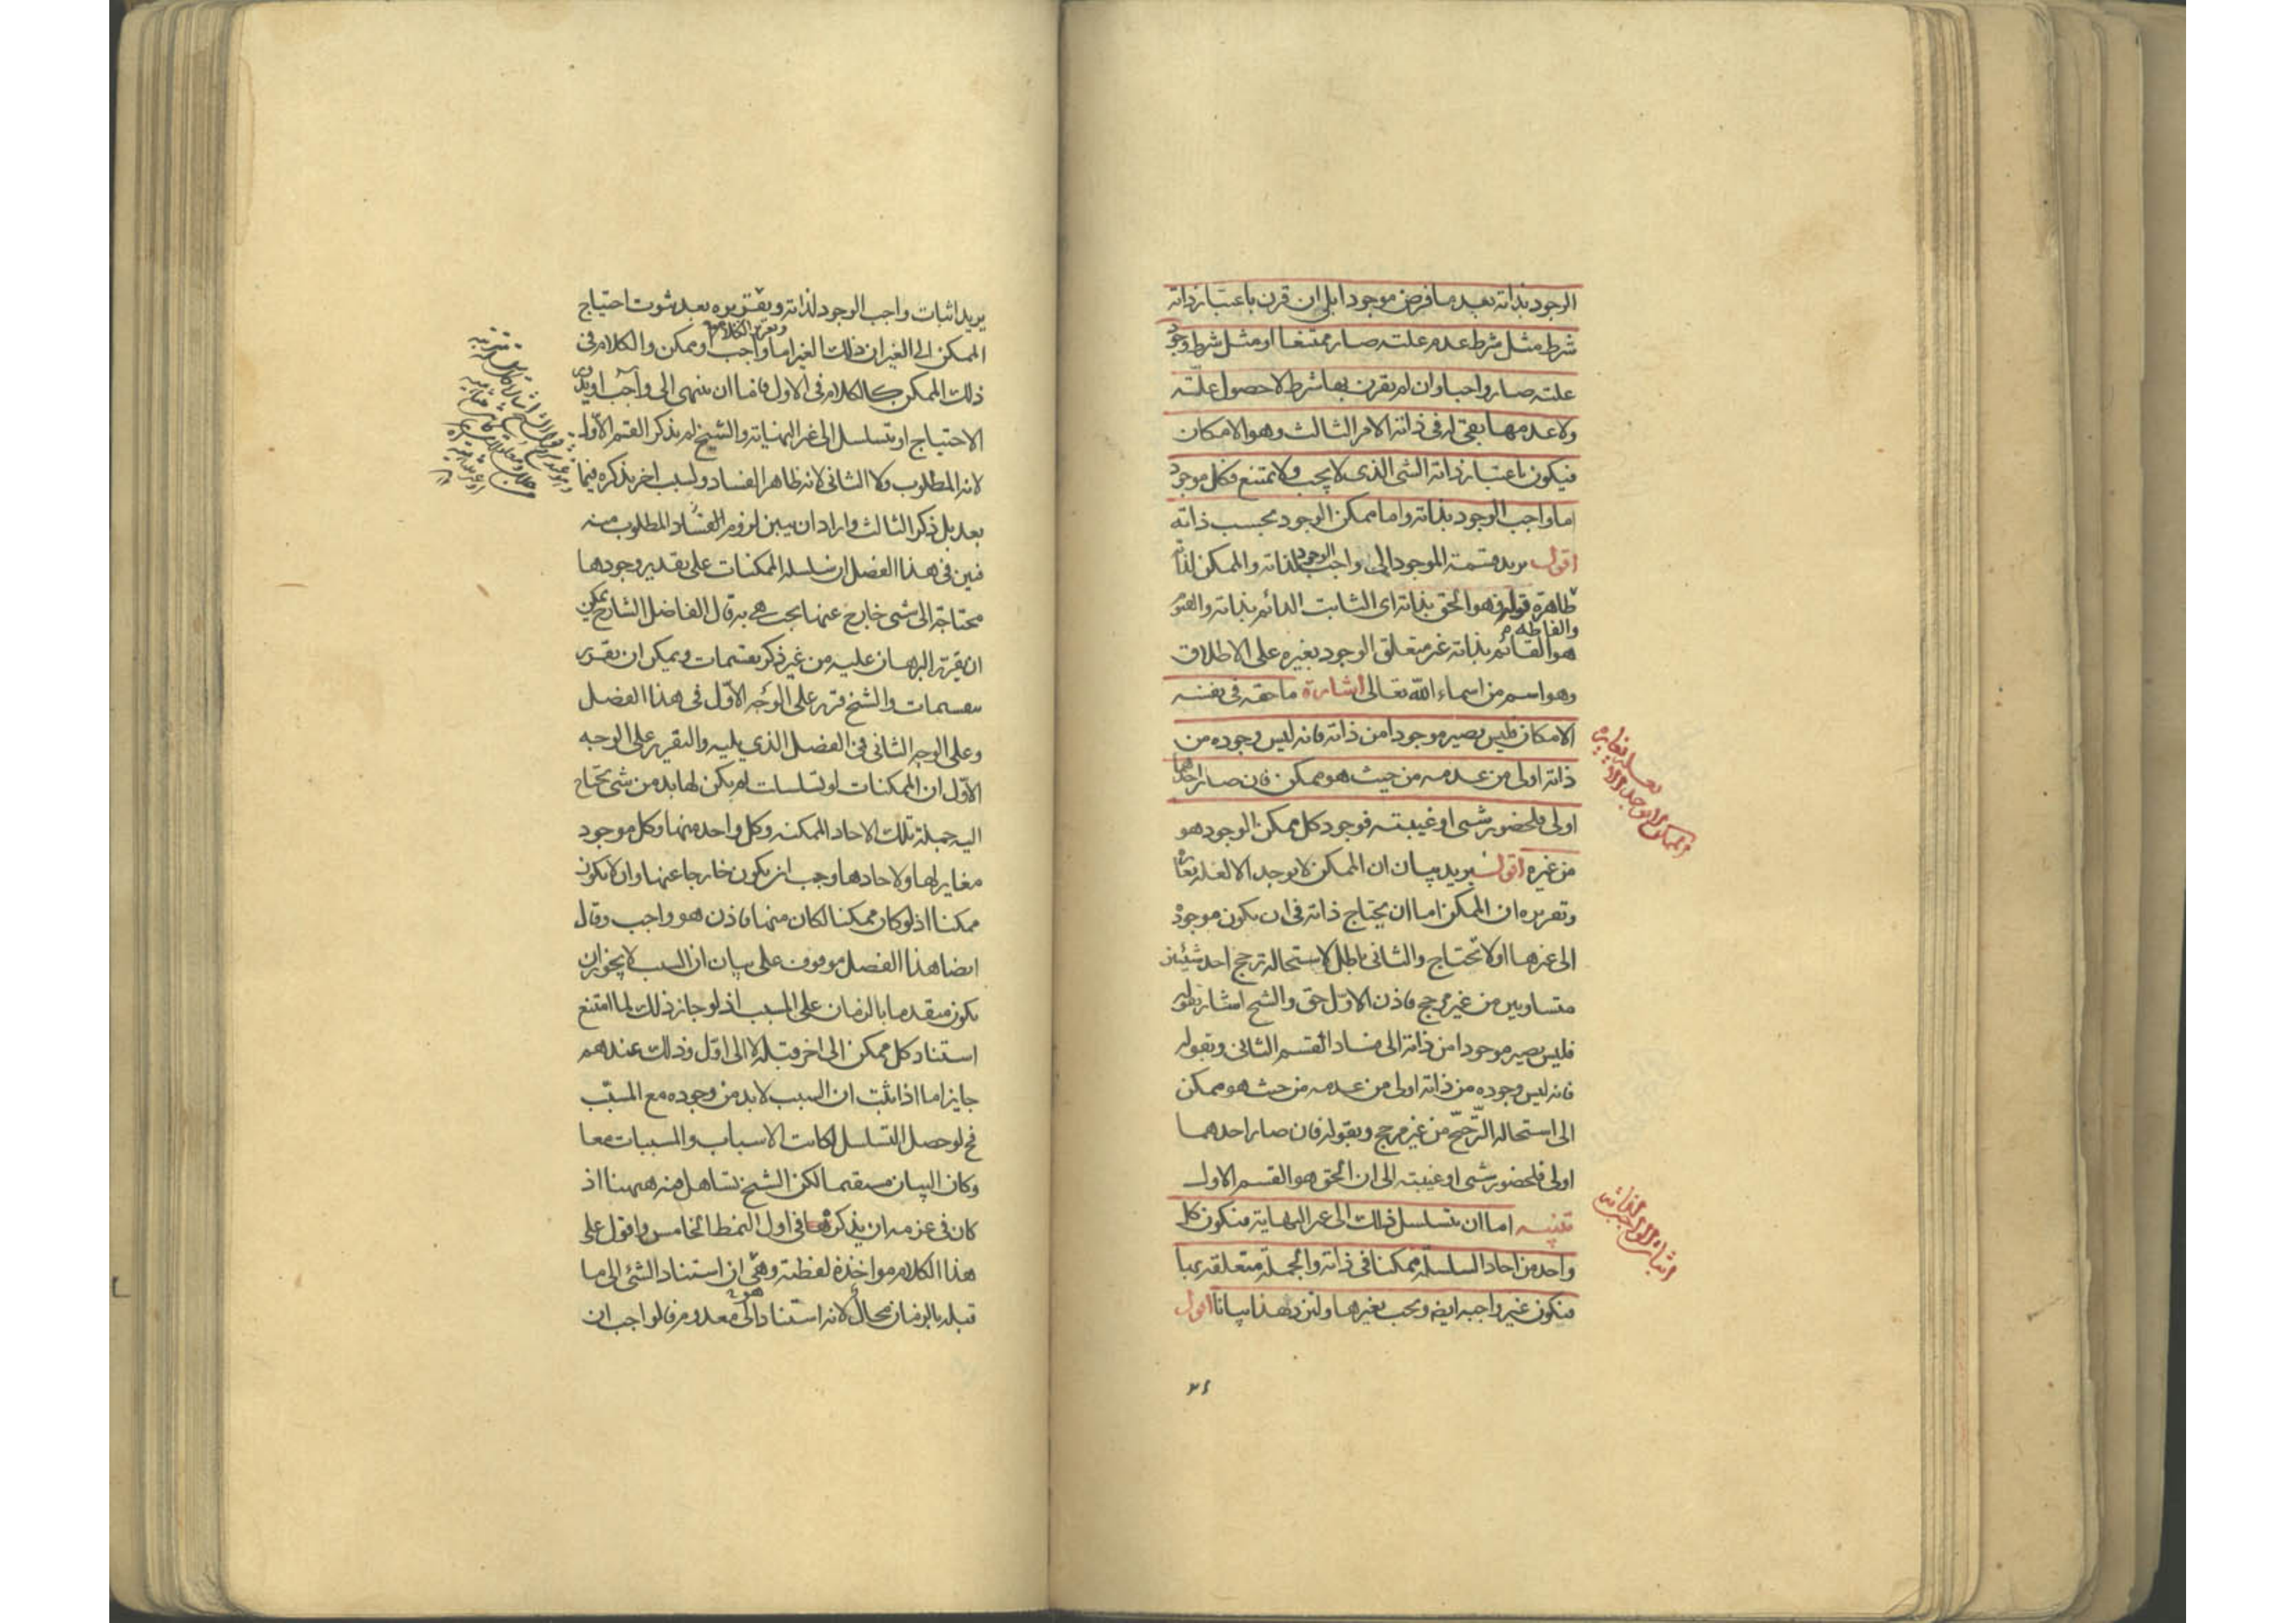 الوجود بذاته بعد ما فرض موجودا بلى ان قرن باعتبار ذاته
شرط مثل شرط عدم علته صار ممتنعا او مثل شرط وجود
علته صار واجبا وان لم يقرن بها شرط لا حصول علّته
ولا عدمها بقى له فى ذاته الامر الثالث وهو الامكان
فيكون باعتبار ذاته الشى الذى لا يجب ولا يمتنع فكل موجود
اما واجب الوجود بذاته واما ممكن الوجود بحسب ذاته
اقول يريد قسمة الموجود الى واجب الوجود لذاته والممكن لذاته
والفاظه ظاهرة قوله فهو الحق بذاته اى الثابت الدائم بذاته والقيوم
هو القائم بذاته غير متعلق الوجود بغيره على الاطلاق
وهو اسم من اسماء الله تعالى اشارة ما حقه فى نفسه
الامكان فليس يصير موجودا من ذاته فانه ليس وجوده من
ذاته اولى من عدمه من حيث هو ممكن فان صار احدهما
اولى فلحضور شى او غيبته فوجود كل ممكن الوجود هو
من غيره اقول يريد بيان ان الممكن لا يوجد الا لعلة تغايره
وتقريره ان الممكن اما ان يحتاج ذاته فى ان يكون موجودة
الى غيرها او لا تحتاج والثانى باطل لاستحالة ترجح احد شيئين
متساويين من غير مرجح فاذن الاوّل حق والشيخ اشار بقوله
فليس يصير موجودا من ذاته الى فساد القسم الثانى وبقوله
فانه ليس وجوده من ذاته اولى من عدمه من حيث هو ممكن
الى استحالة الترّجّح من غير مرجح وبقوله فان صار احدهما
اولى فلحضور شى او غيبته الى ان الحق هو القسم الاول
تنبيه اما ان يتسلسل ذلك الى غير النهاية فيكون كل
واحد من احاد السلسلة ممكنا فى ذاته والجملة متعلقة بها
فيكون غير واجبة ايضا ويجب بغيرها ولنزد هذا بيانا اقول
الممكن لا يوجد الا
لعلة تغايره
اثبات الواجب لذاته
يريد اثبات واجب الوجود لذاته وتقريره بعد ثبوت احتياج
الممكن الى الغير ان ذلك الغير اما واجب او ممكن والكلام فى
ذلك الممكن كالكلام فى الاول فاما ان ينتهى الى واجب او يدور
الاحتياج او يتسلسل الى غير النهاية والشيخ لم يذكر القسم الاوّل
لانه المطلوب ولا الثانى لانه ظاهر الفساد ولسبب اخر يذكره فيما
بعد بل ذكر الثالث واراد ان يبين لزوم المطلوب منه
فبين فى هذا الفصل ان سلسلة الممكنات على تقدير وجودها
محتاجة الى شى خارج عنها يجب هى به قال الفاضل الشارح يمكن
ان يقرر البرهان عليه من غير ذكر تقسيمات ويمكن ان يقرر
بتقسيمات والشيخ قرر على الوجه الاوّل فى هذا الفصل
وعلى الوجه الثانى فى الفصل الذى يليه والتقرير على الوجه
الاوّل ان الممكنات لو تسلسلت لم يكن لها بد من شى تحتاج
اليه جملة تلك الاحاد الممكنه وكل واحد منها وكل موجود
مغاير لها ولاحادها وجب ان يكون خارجا عنها وان لا يكون
ممكنا اذ لو كان ممكنا لكان منها فاذن هو واجب وقال
ايضا هذا الفصل موقوف على بيان ان السبب لا يجوز ان
يكون متقدما بالزمان على المسبب اذ لو جاز ذلك لما امتنع
استناد كل ممكن الى اخر قبله لا الى اوّل وذلك عندهم
جايز اما اذا ثبت ان السبب لا بد من وجوده مع المسبّب
فح لو حصل التسلسل لكانت الاسباب والمسببات معا
وكان البيان مستقيما لكن الشيخ تساهل فيه ههنا اذ
كان فى عزمه ان يذكره فى اول النمط الخامس واقول على
هذا الكلام مواخذة لفظية وهى ان استناد الشئ الى ما
قبله بالزمان محال لانه استناد الى معدوم فالواجب ان